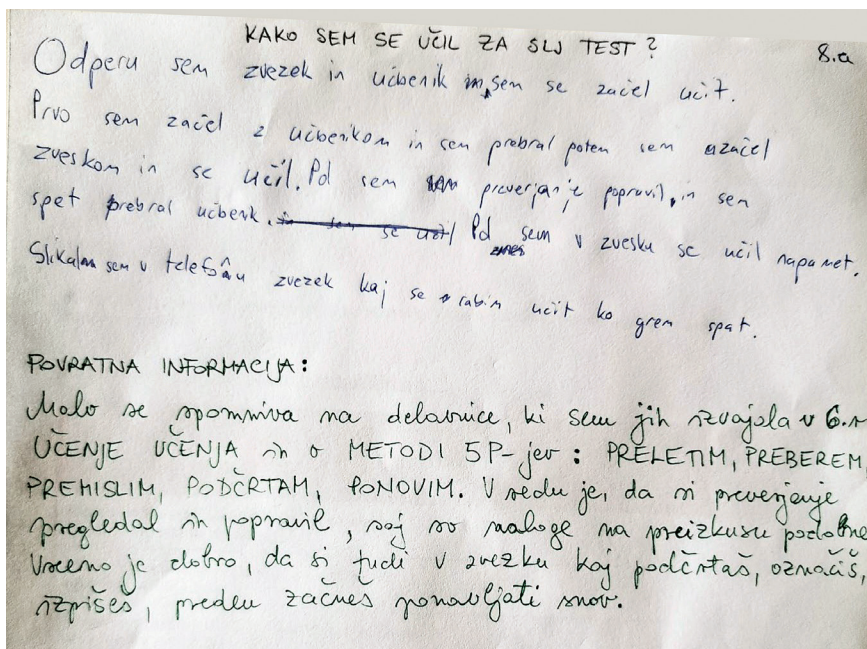 KAKO SEM SE UČIL ZA SLJ TEST?
8.a
Odperu sem zvezek in učbenik in sem se začel učit.
Prvo sem začel z učbenikom in sem prebral potem sem začel
zveskom in se učil. Pol sem preverjanje popravil, in sem
spet prebral učbenk. Pol sem v zvesku se učil napamet.
Slikal sem v telefonu zvezek kaj se rabim učit ko grem spat.
POVRATNA INFORMACIJA:
Malo se spomniva na delavnice, ki sem jih izvajala v 6.r
UČENJE UČENJA in o METODI 5P-jev: PRELETIM, PREBEREM,
PREMISLIM, PODČRTAM, PONOVIM. V redu je, da si preverjanje
pregledal in popravil, saj so naloge na preizkusu podobne
Vseeno je dobro, da si tudi v zvezku kaj podčrtaš, označiš,
izpišeš, preden začneš ponavljati snov.